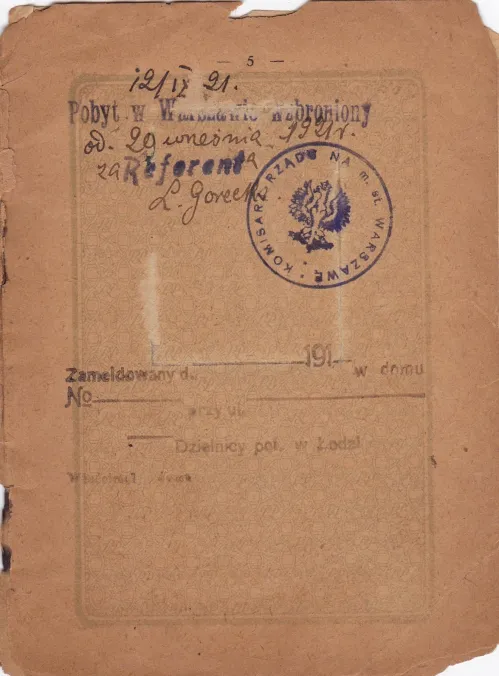 — 5 —
12/IX 21.
Pobyt w Warszawie wzbroniony
od. 29 września 1921 r.
za Referenta
L. Goreck
KOMISARZ RZĄDU NA m. st. WARSZAWĘ
191
Zameldowany d. w domu
No
przy ul.
Dzielnicy pol. w Łodzi